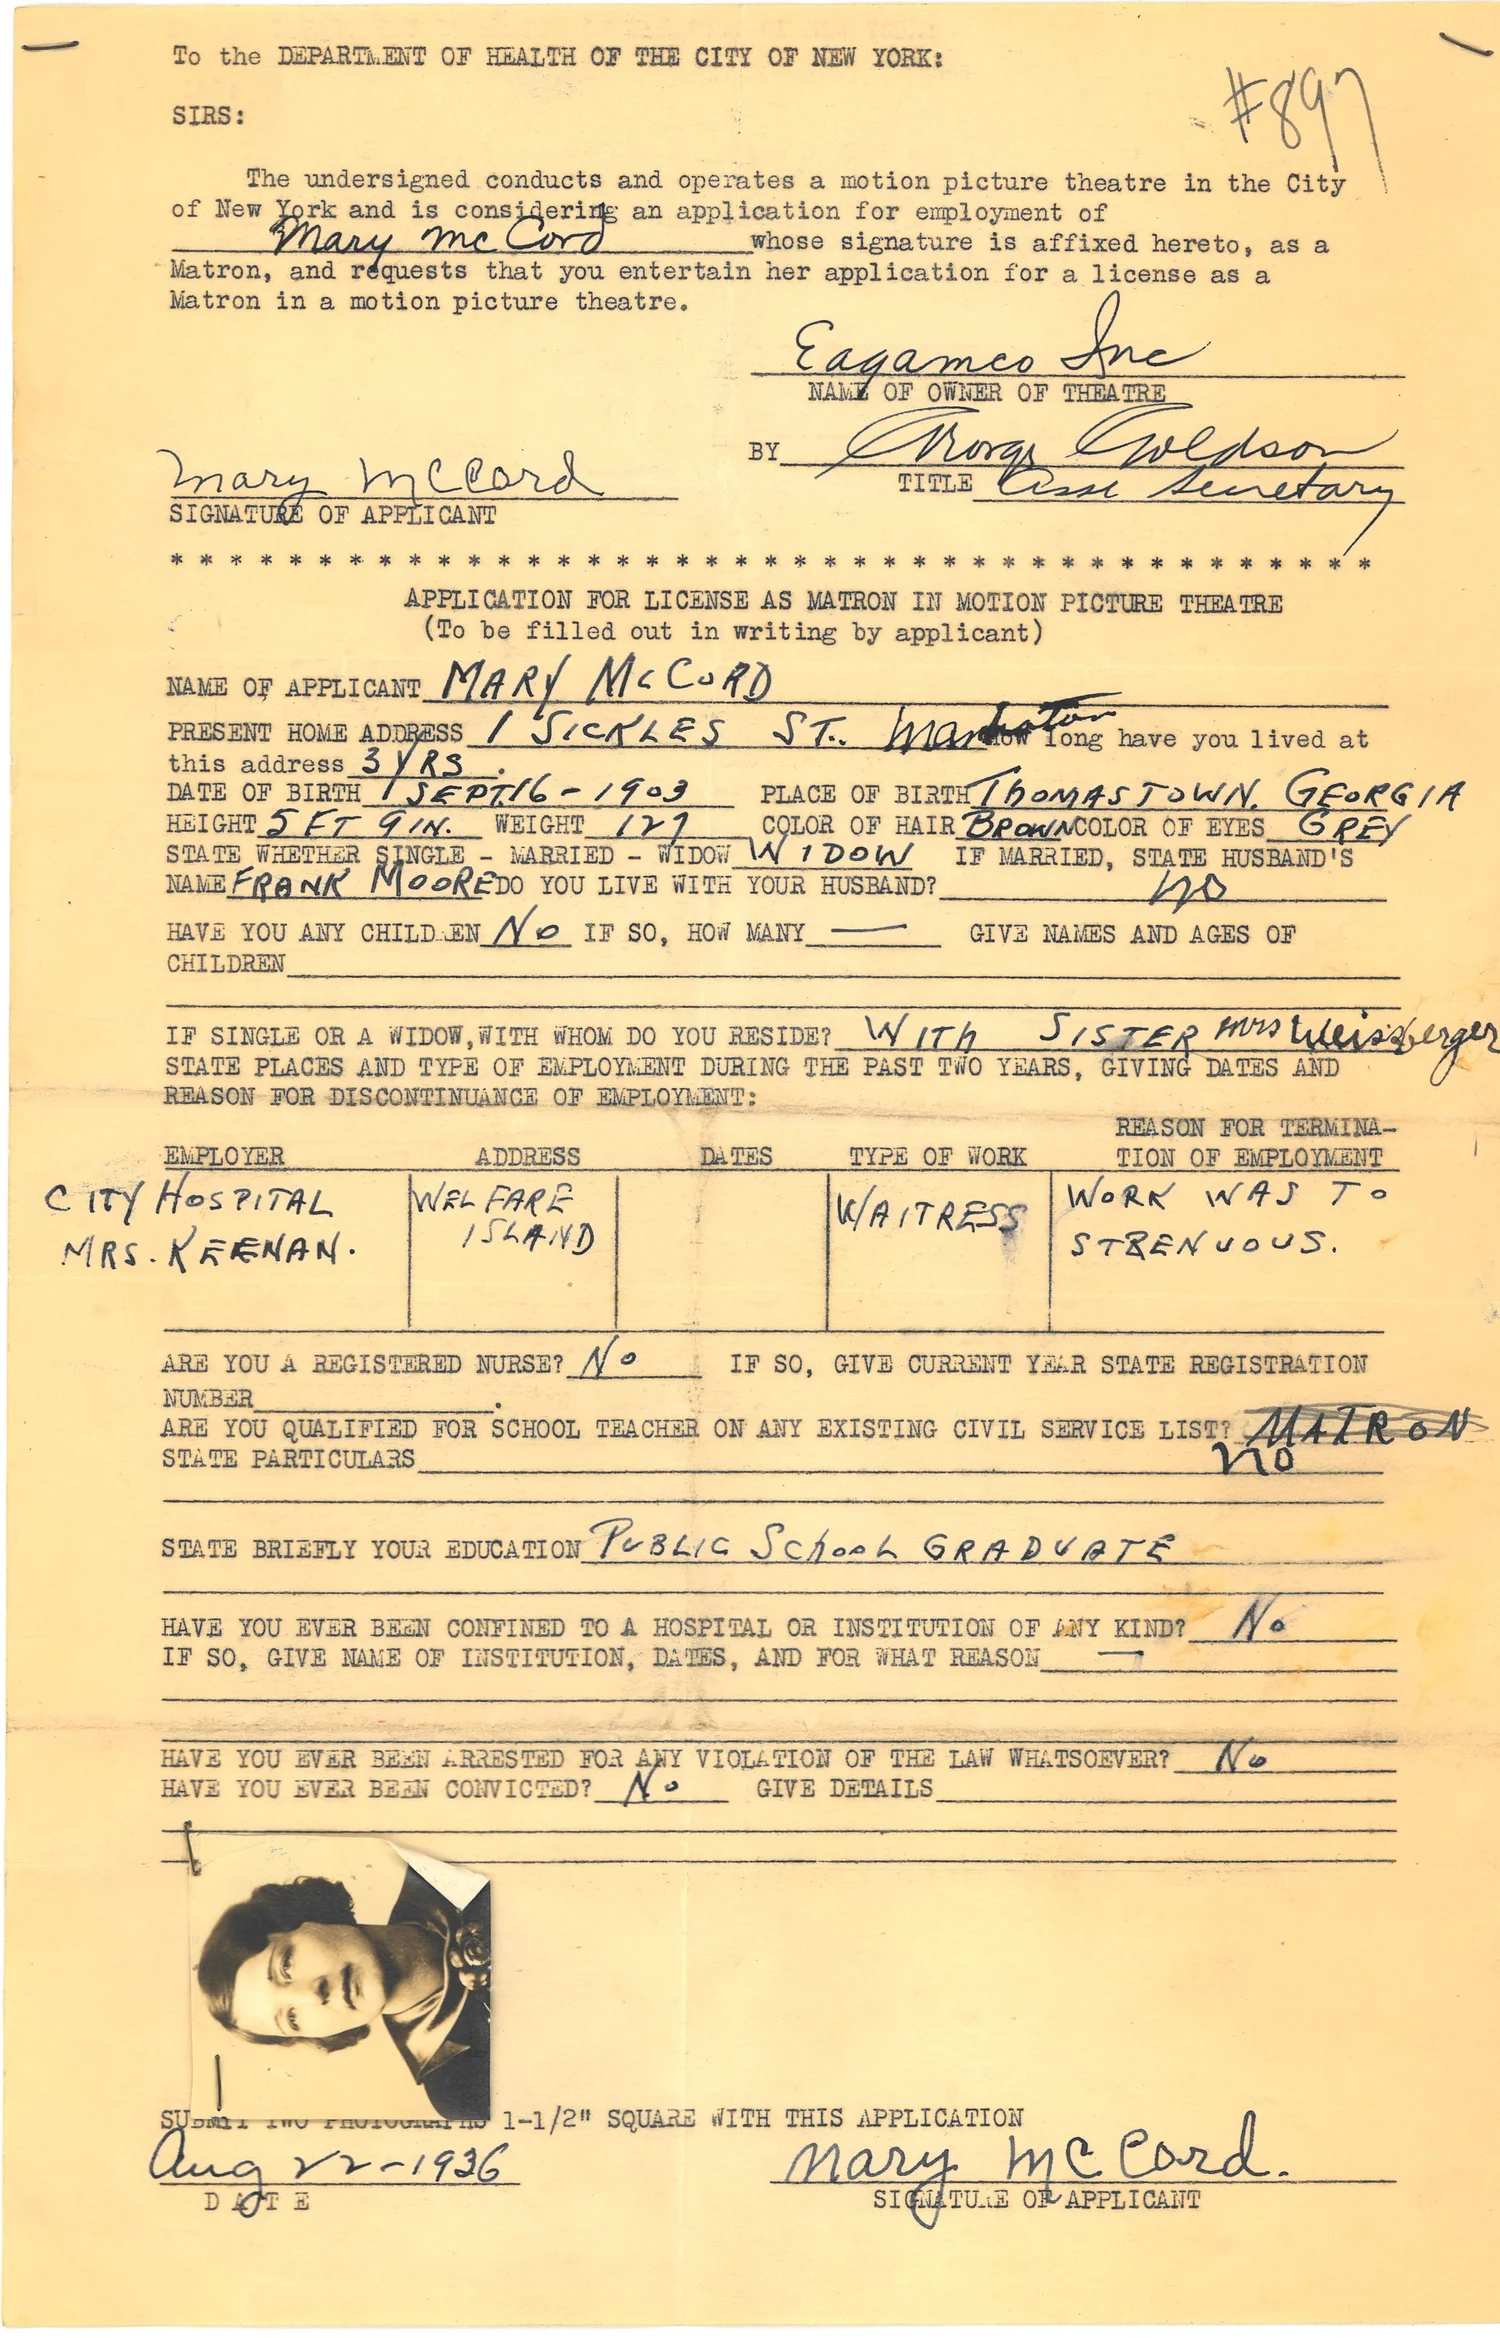 To the DEPARTMENT OF HEALTH OF THE CITY OF NEW YORK:
#897
SIRS:
The undersigned conducts and operates a motion picture theatre in the City
of New York and is considering an application for employment of
Mary McCord whose signature is affixed hereto, as a
Matron, and requests that you entertain her application for a license as a
Matron in a motion picture theatre.
Eagamco Inc
NAME OF OWNER OF THEATRE
BY George Goldson
Mary McCord TITLE Asst Secretary
SIGNATURE OF APPLICANT
* * * * * * * * * * * * * * * * * * * * * * * * * * * * * * * * * * * * * * * * *
APPLICATION FOR LICENSE AS MATRON IN MOTION PICTURE THEATRE
(To be filled out in writing by applicant)
NAME OF APPLICANT MARY McCORD
PRESENT HOME ADDRESS 1 SICKLES ST. Manhatan How long have you lived at
this address 3 YRS.
DATE OF BIRTH SEPT. 16-1903 PLACE OF BIRTH THOMASTOWN. GEORGIA
HEIGHT 5 FT 9 IN. WEIGHT 127 COLOR OF HAIR BROWN COLOR OF EYES GREY
STATE WHETHER SINGLE - MARRIED - WIDOW WIDOW IF MARRIED, STATE HUSBAND'S
NAME FRANK MOORE DO YOU LIVE WITH YOUR HUSBAND? no
HAVE YOU ANY CHILDREN No IF SO, HOW MANY — GIVE NAMES AND AGES OF
CHILDREN
IF SINGLE OR A WIDOW, WITH WHOM DO YOU RESIDE? WITH SISTER Mrs Weissberger
STATE PLACES AND TYPE OF EMPLOYMENT DURING THE PAST TWO YEARS, GIVING DATES AND
REASON FOR DISCONTINUANCE OF EMPLOYMENT:
REASON FOR TERMINA-
EMPLOYER ADDRESS DATES TYPE OF WORK TION OF EMPLOYMENT
CITY HOSPITAL WELFARE WAITRESS WORK WAS TO
MRS. KEENAN. ISLAND STRENUOUS.
ARE YOU A REGISTERED NURSE? No IF SO, GIVE CURRENT YEAR STATE REGISTRATION
NUMBER .
ARE YOU QUALIFIED FOR SCHOOL TEACHER ON ANY EXISTING CIVIL SERVICE LIST? MATRON
STATE PARTICULARS no
STATE BRIEFLY YOUR EDUCATION PUBLIC SCHOOL GRADUATE
HAVE YOU EVER BEEN CONFINED TO A HOSPITAL OR INSTITUTION OF ANY KIND? No
IF SO, GIVE NAME OF INSTITUTION, DATES, AND FOR WHAT REASON —
HAVE YOU EVER BEEN ARRESTED FOR ANY VIOLATION OF THE LAW WHATSOEVER? No
HAVE YOU EVER BEEN CONVICTED? No GIVE DETAILS
SUBMIT TWO PHOTOGRAPHS 1-1/2" SQUARE WITH THIS APPLICATION
Aug 22-1936 Mary McCord.
DATE SIGNATURE OF APPLICANT